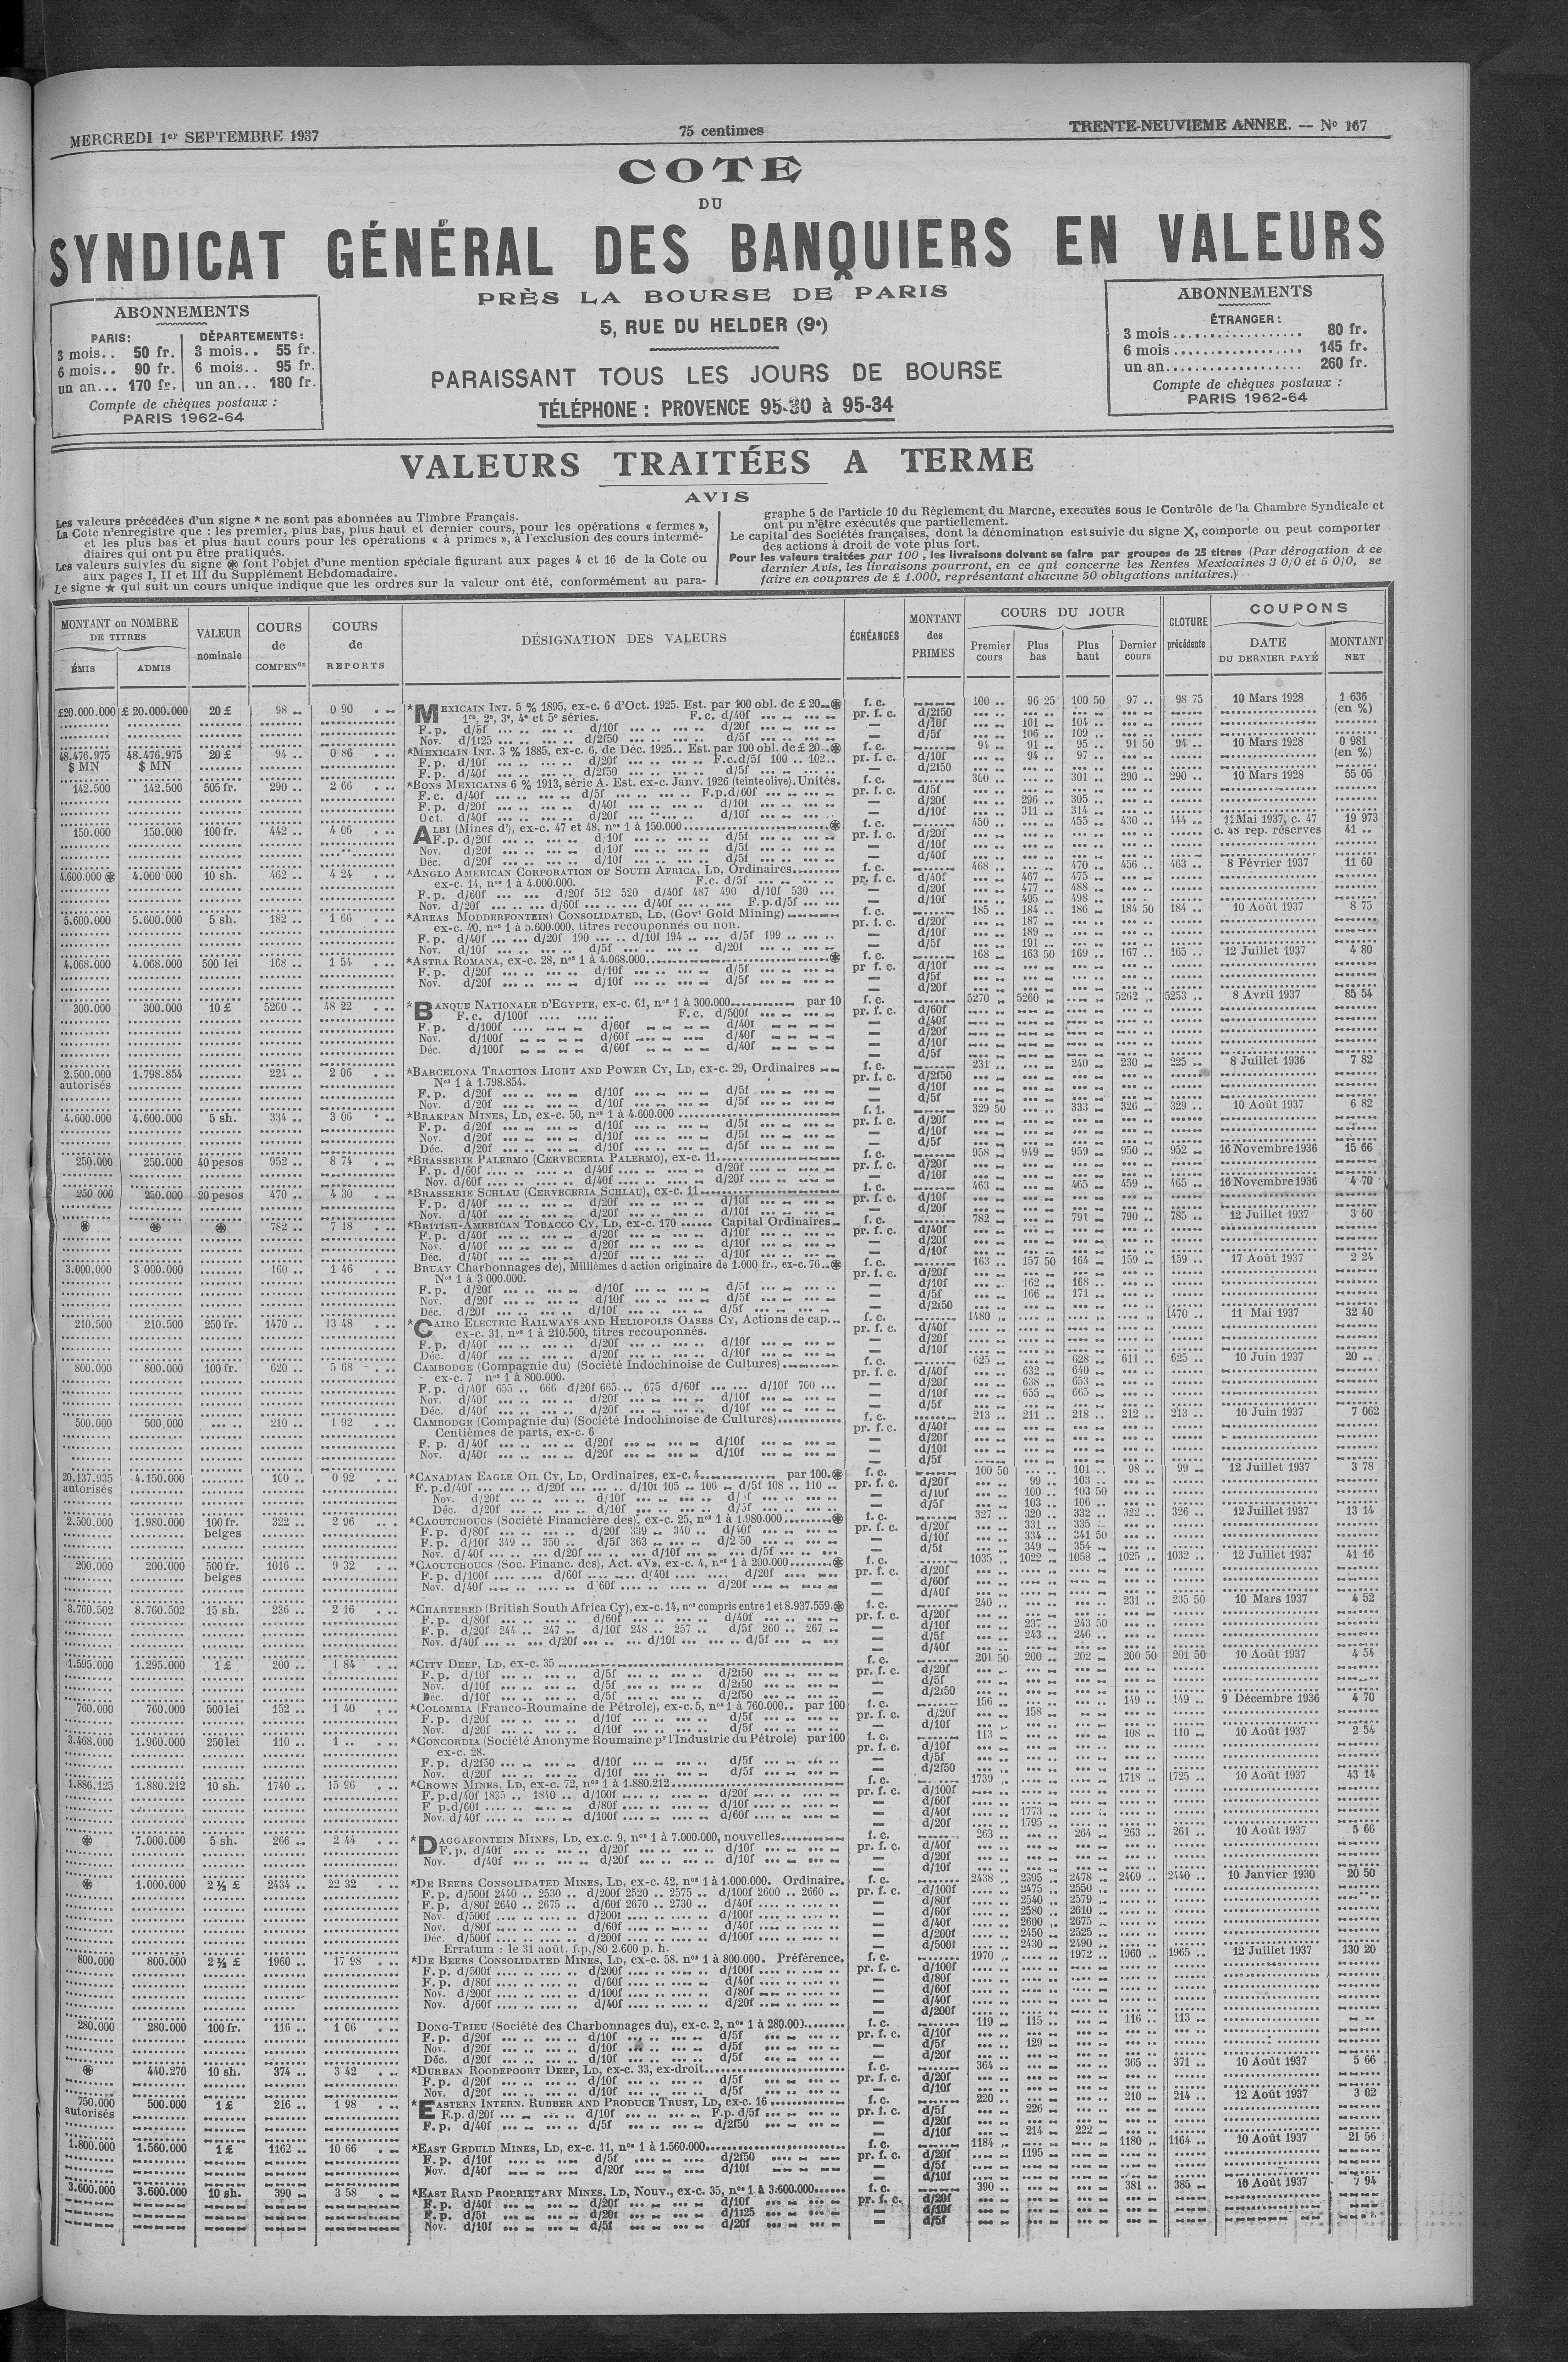 MERCREDI 1er SEPTEMBRE 1937
75 centimes
TRENTE-NEUVIEME ANNEE. — No 167
COTE
DU
SYNDICAT GÉNÉRAL DES BANQUIERS EN VALEURS
PRÈS LA BOURSE DE PARIS
5, RUE DU HELDER (9e)
PARAISSANT TOUS LES JOURS DE BOURSE
TÉLÉPHONE : PROVENCE 95-30 à 95-34
ABONNEMENTS
PARIS: DÉPARTEMENTS:
3 mois.. 50 fr. 3 mois.. 55 fr.
6 mois.. 90 fr. 6 mois.. 95 fr.
un an... 170 fr. un an... 180 fr.
Compte de chèques postaux :
PARIS 1962-64
ABONNEMENTS
ÉTRANGER :
3 mois .................. 80 fr.
6 mois .................. 145 fr.
un an................... 260 fr.
Compte de chèques postaux :
PARIS 1962-64
VALEURS TRAITÉES A TERME
AVIS
Les valeurs précédées d'un signe * ne sont pas abonnées au Timbre Français.
La Cote n'enregistre que : les premier, plus bas, plus haut et dernier cours, pour les opérations « fermes »,
et les plus bas et plus haut cours pour les opérations « à primes », à l'exclusion des cours intermé-
diaires qui ont pu être pratiqués.
Les valeurs suivies du signe ⊛ font l'objet d'une mention spéciale figurant aux pages 4 et 16 de la Cote ou
aux pages I, II et III du Supplément Hebdomadaire.
Le signe ★ qui suit un cours unique indique que les ordres sur la valeur ont été, conformément au para-
graphe 5 de l'article 10 du Règlement du Marche, executés sous le Contrôle de la Chambre Syndicale et
ont pu n'être exécutés que partiellement.
Le capital des Sociétés françaises, dont la dénomination est suivie du signe X, comporte ou peut comporter
des actions à droit de vote plus fort.
Pour les valeurs traitées par 100, les livraisons doivent se faire par groupes de 25 titres (Par dérogation à ce
dernier Avis, les livraisons pourront, en ce qui concerne les Rentes Mexicaines 3 0/0 et 5 0/0, se
faire en coupures de £ 1.000, représentant chacune 50 obligations unitaires.)
MONTANT ou NOMBRE DE TITRES
ÉMIS ADMIS
VALEUR nominale
COURS de COMPENon
COURS de REPORTS
DÉSIGNATION DES VALEURS
ÉCHÉANCES
MONTANT des PRIMES
COURS DU JOUR
Premier cours Plus bas Plus haut Dernier cours
CLOTURE précédente
COUPONS
DATE DU DERNIER PAYÉ
MONTANT NET
£20.000.000 £ 20.000.000 20 £ 98 0 90 *MEXICAIN INT. 5 % 1895, ex-c. 6 d'Oct. 1925. Est. par 100 obl. de £ 20 ⊛ f. c. 100 96 25 100 50 97 98 75 10 Mars 1928 1 636
1re, 2e, 3e, 4e et 5e séries. F.c. d/40f pr. f. c. d/2f50 (en %)
F. p. d/5f d/10f d/20f — d/10f 101 104
Nov. d/1f25 d/2f50 d/5f — d/5f 106 109
48.476.975 48.476.975 20 £ 94 0 86 *MEXICAIN INT. 3 % 1885, ex-c. 6, de Déc. 1925.. Est. par 100 obl. de £ 20 ⊛ f. c. 94 91 95 91 50 94 10 Mars 1928 0 981
$ MN $ MN F. p. d/10f d/20f F.c.d/5f 100 .. 102.. pr. f. c. d/10f 94 97 (en %)
F. p. d/40f d/2f50 d/5f — d/2f50
142.500 142.500 505 fr. 290 2 66 *BONS MEXICAINS 6 % 1913, série A. Est. ex-c. Janv. 1926 (teinte olive). Unités. f. c. 300 301 290 290 10 Mars 1928 55 05
F. c. d/40f d/5f F.p.d/60f pr. f. c. d/5f
F. p. d/20f d/40f d/10f — d/20f 296 305
Oct. d/40f d/20f d/10f — d/10f 311 314
150.000 150.000 100 fr. 442 4 06 ALBI (Mines d'), ex-c. 47 et 48, nos 1 à 150.000 ⊛ f. c. 450 455 430 444 12 Mai 1937, c. 47 19 973
F. p. d/20f d/10f d/5f pr. f. c. d/20f c. 48 rep. réserves 41
Nov. d/20f d/10f d/5f — d/10f
Déc. d/20f d/10f d/5f — d/40f
4.600.000 ⊛ 4.000.000 10 sh. 462 4 24 *ANGLO AMERICAN CORPORATION OF SOUTH AFRICA, LD, Ordinaires f. c. 468 470 456 463 8 Février 1937 11 60
ex-c. 14, nos 1 à 4.000.000. F.c. d/5f pr. f. c. d/40f 467 475
F. p. d/60f d/20f 512 520 d/40f 487 490 d/10f 530 — d/20f 477 488
Nov. d/20f d/60f d/40f F. p.d/5f — d/10f 495 498
5.600.000 5.600.000 5 sh. 182 1 66 *AREAS MODDERFONTEIN) CONSOLIDATED, LD. (Govt Gold Mining) f. c. 185 184 186 184 50 184 10 Août 1937 8 75
ex-c. 40, nos 1 à 5.600.000, titres recouponnés ou non. pr. f. c. d/20f 187
F. p. d/40f d/20f 190 d/10f 194 d/5f 199 — d/10f 189
Nov. d/10f d/5f d/20f — d/5f 191
4.068.000 4.068.000 500 lei 168 1 54 *ASTRA ROMANA, ex-c. 28, nos 1 à 4.068.000 ⊛ f. c. 168 163 50 169 167 165 12 Juillet 1937 4 80
F. p. d/20f d/10f d/5f pr f. c. d/10f
Nov. d/20f d/10f d/5f — d/5f
— d/20f
300.000 300.000 10 £ 5260 48 22 *BANQUE NATIONALE D'EGYPTE, ex-c. 61, nos 1 à 300.000 par 10 f. c. 5270 5260 5262 5253 8 Avril 1937 85 54
F. c. d/100f F. c. d/500f pr. f. c. d/60f
F. p. d/100f d/60f d/40f — d/40f
Nov. d/100f d/60f d/40f — d/20f
Déc. d/100f d/60f d/40f — d/10f
— d/5f
2.500.000 1.798.854 224 2 06 *BARCELONA TRACTION LIGHT AND POWER CY, LD, ex-c. 29, Ordinaires f. c. 231 240 230 225 8 Juillet 1936 7 82
autorisés Nos 1 à 1.798.854. pr. f. c. d/2f50
F. p. d/20f d/10f d/5f — d/10f
Nov. d/20f d/10f d/5f — d/5f
4.600.000 4.600.000 5 sh. 334 3 06 *BRAKPAN MINES, LD, ex-c. 50, nos 1 à 4.600.000 f. 1. 329 50 333 326 329 10 Août 1937 6 82
F. p. d/20f d/10f d/5f pr. f. c. d/20f
Nov. d/20f d/10f d/5f — d/10f
Déc. d/20f d/10f d/5f — d/5f
250.000 250.000 40 pesos 952 8 74 *BRASSERIE PALERMO (CERVECERIA PALERMO), ex-c. 11 f. c. 958 949 959 950 952 16 Novembre 1936 15 66
F. p. d/60f d/40f d/20f pr. f. c. d/20f
Nov. d/60f d/40f d/20f — d/10f
250 000 250.000 20 pesos 470 4 30 *BRASSERIE SCHLAU (CERVECERIA SCHLAU), ex-c. 11 f. c. 463 465 459 465 16 Novembre 1936 4 70
F. p. d/40f d/20f d/10f pr. f. c. d/10f
Nov. d/40f d/20f d/10f — d/20f
⊛ ⊛ ⊛ 782 7 18 *BRITISH-AMERICAN TOBACCO CY, LD, ex-c. 170 ...... Capital Ordinaires f. c. 782 791 790 785 12 Juillet 1937 3 60
F. p. d/40f d/20f d/10f pr. f. c. d/40f
Nov. d/40f d/20f d/10f — d/20f
Déc. d/40f d/20f d/10f — d/10f
3.000.000 3 000.000 160 1 46 BRUAY Charbonnages de), Millièmes d action originaire de 1.000 fr., ex-c. 76 ⊛ f. c. 163 157 50 164 159 159 17 Août 1937 2 24
Nos 1 à 3 000.000. pr. f. c. d/20f
F. p. d/20f d/10f d/5f — d/10f 162 168
Nov. d/20f d/10f d/5f — d/5f 166 171
Déc. d/20f d/10f d/5f — d/2f50
210.500 210.500 250 fr. 1470 13 48 *CAIRO ELECTRIC RAILWAYS AND HELIOPOLIS OASES CY, Actions de cap. f. c. 1480 1470 11 Mai 1937 32 40
ex-c. 31, nos 1 à 210.500, titres recouponnés. pr. f. c. d/40f
F. p. d/40f d/20f d/10f — d/20f
Déc. d/40f d/20f d/10f — d/10f
800.000 800.000 100 fr. 620 5 68 CAMBODGE (Compagnie du) (Société Indochinoise de Cultures) f. c. 625 628 611 625 10 Juin 1937 20
ex-c. 7 nos 1 à 800.000. pr. f. c. d/40f 632 640
F. p. d/40f 655 .. 666 d/20f 665 .. 675 d/60f d/10f 700 — d/20f 638 653
Nov. d/40f d/20f d/10f — d/10f 655 665
Déc. d/40f d/20f d/10f — d/5f
500.000 500.000 210 1 92 CAMBODGE (Compagnie du) (Société Indochinoise de Cultures) f. c. 213 211 218 212 213 10 Juin 1937 7 062
Centièmes de parts, ex-c. 6 pr. f. c. d/40f
F. p. d/40f d/20f d/10f — d/20f
Nov. d/40f d/20f d/10f — d/10f
— d/5f
20.137.935 4.150.000 100 0 92 *CANADIAN EAGLE OIL CY, LD, Ordinaires, ex-c. 4 par 100. ⊛ f. c. 100 50 101 98 99 12 Juillet 1937 3 78
autorisés F. p.d/40f d/20f d/10f 105 106 d/5f 108 .. 110 pr. f. c. d/20f 99 103
Nov. d/20f d/10f d/5f — d/10f 100 103 50
Déc. d/20f d/10f d/5f — d/5f 103 106
2.500.000 1.980.000 100 fr. 322 2 96 *CAOUTCHOUCS (Société Financière des), ex-c. 25, nos 1 à 1.980.000 ⊛ f. c. 327 320 332 322 326 12 Juillet 1937 13 14
belges F. p. d/80f d/20f 339 340 d/40f pr. f. c. d/20f 331 335
F. p. d/10f 349 .. 350 d/5f 363 d/2 50 — d/10f 334 341 50
Nov. d/40f d/20f d/10f d/5f — d/5f 349 354
200.000 200.000 500 fr. 1016 9 32 *CAOUTCHOUCS (Soc. Financ. des), Act. «V», ex-c. 4, nos 1 à 200.000 ⊛ f. c. 1035 1022 1058 1025 1032 12 Juillet 1937 41 16
belges F. p. d/100f d/60f d/40f d/20f pr. f. c. d/20f
Nov. d/40f d 60f d/20f — d/60f
— d/40f
8.760.502 8.760.502 15 sh. 236 2 16 *CHARTERED (British South Africa Cy), ex-c. 14, nos compris entre 1 et 8.937.559. ⊛ f. c. 240 231 235 50 10 Mars 1937 4 52
F. p. d/80f d/60f d/40f pr. f. c. d/20f
F. p. d/20f 244 .. 247 d/10f 248 .. 257 d/5f 260 .. 267 — d/10f 237 243 50
Nov. d/40f d/20f d/10f d/5f — d/5f 243 246
— d/40f
1.595.000 1.295.000 1 £ 200 1 84 *CITY DEEP, LD, ex-c. 35 f. c. 201 50 200 202 200 50 201 50 10 Août 1937 4 54
F. p. d/10f d/5f d/2f50 pr. f. c. d/20f
Nov. d/10f d/5f d/2f50 — d/5f
Déc. d/10f d/5f d/2f50 — d/2f50
760.000 760.000 500 lei 152 1 40 *COLOMBIA (Franco-Roumaine de Pétrole), ex-c. 5, nos 1 à 760.000.. par 100 f. c. 156 149 149 9 Décembre 1936 4 70
F. p. d/20f d/10f d/5f pr. f. c. d/20f 158
Nov. d/20f d/10f d/5f — d/10f
3.468.000 1.960.000 250 lei 110 1 .. *CONCORDIA (Société Anonyme Roumaine pr l'Industrie du Pétrole) par 100 f. c. 113 108 110 10 Août 1937 2 54
ex-c. 28. pr. f. c. d/10f
F. p. d/2f50 d/10f d/5f — d/5f
Nov. d/20f d/10f d/5f — d/2f50
1.886.125 1.880.212 10 sh. 1740 15 96 *CROWN MINES, LD, ex-c. 72, nos 1 à 1.880.212 f. c. 1739 1718 1725 10 Août 1937 43 14
F. p.d/40f 1835 .. 1840 d/100f d/20f pr. f. c. d/100f
F p.d/60f d/80f d/10f — d/60f
Nov. d/ 40f d/100f d/60f — d/40f 1773
— d/20f 1795
⊛ 7.000.000 5 sh. 266 2 44 *DAGGAFONTEIN MINES, LD, ex.c. 9, nos 1 à 7.000.000, nouvelles f. c. 263 264 263 261 10 Août 1937 5 66
F. p. d/40f d/20f d/10f pr. f. c. d/40f
Nov. d/40f d/20f d/10f — d/20f
— d/10f
⊛ 1.000.000 2 ½ £ 2434 22 32 *DE BEERS CONSOLIDATED MINES, LD, ex-c. 42, nos 1 à 1.000.000. Ordinaire. f. c. 2438 2395 2478 2409 2440 10 Janvier 1930 20 50
F. p. d/500f 2440 .. 2530 d/200f 2520 .. 2575 d/100f 2600 .. 2660 pr. f. c. d/100f 2475 2550
F. p. d/80f 2640 .. 2675 d/60f 2670 .. 2730 d/40f — d/80f 2540 2579
Nov. d/500f d/200f d/100f — d/60f 2580 2610
Nov. d/80f d/60f d/40f — d/40f 2600 2675
Déc. d/500f d/200f d/100f — d/200f 2450 2525
Erratum : le 31 août. f.p./80 2.600 p. h. — d/500f 2430 2490
800.000 800.000 2 ½ £ 1960 17 98 *DE BEERS CONSOLIDATED MINES, LD, ex-c. 58. nos 1 à 800.000. Préférence. f. c. 1970 1972 1960 1965 12 Juillet 1937 130 20
F. p. d/500f d/200f d/100f pr. f. c. d/100f
F. p. d/80f d/60f d/40f — d/80f
Nov. d/200f d/100f d/80f — d/60f
Nov. d/60f d/40f d/20f — d/40f
— d/200f
280.000 280.000 100 fr. 116 1 06 DONG-TRIEU (Société des Charbonnages du), ex-c. 2, nos 1 à 280.000 f. c. 119 115 116 113
F. p. d/20f d/10f d/5f pr. f. c. d/10f
Nov. d/20f d/10f d/5f — d/5f 129
Déc. d/20f d/10f d/5f — d/20f
⊛ 440.270 10 sh. 374 3 42 *DURBAN ROODEPOORT DEEP, LD, ex-c. 33, ex-droit f. c. 364 365 371 10 Août 1937 5 66
F. p. d/20f d/10f d/5f pr. f. c. d/20f
Nov. d/20f d/10f d/5f — d/10f
750.000 500.000 1 £ 216 1 98 *EASTERN INTERN. RUBBER AND PRODUCE TRUST, LD, ex-c. 16 f. c. 220 210 214 12 Août 1937 3 02
autorisés F.p. d/20f d/10f F.p. d/5f pr. f. c. d/5f 226
F. p. d/40f d/5f d/2f50 — d/20f
— d/10f 214 222
1.800.000 1.560.000 1 £ 1162 10 66 *EAST GEDULD MINES, LD, ex-c. 11, nos 1 à 1.560.000 f. c. 1184 1180 1164 10 Août 1937 21 56
F. p. d/10f d/5f d/2f50 pr. f. c. d/20f 1195
Nov. d/40f d/20f d/10f — d/5f
— d/10f
3.600.000 3.600.000 10 sh. 390 3 58 *EAST RAND PROPRIETARY MINES, LD, Nouv., ex-c. 35, nos 1 à 3.600.000 f. c. 390 381 385 10 Août 1937 7 94
F. p. d/40f d/20f d/10f pr. f. c. d/20f
F. p. d/5f d/20f d/1f25 — d/10f
Nov. d/10f d/5f d/20f — d/5f